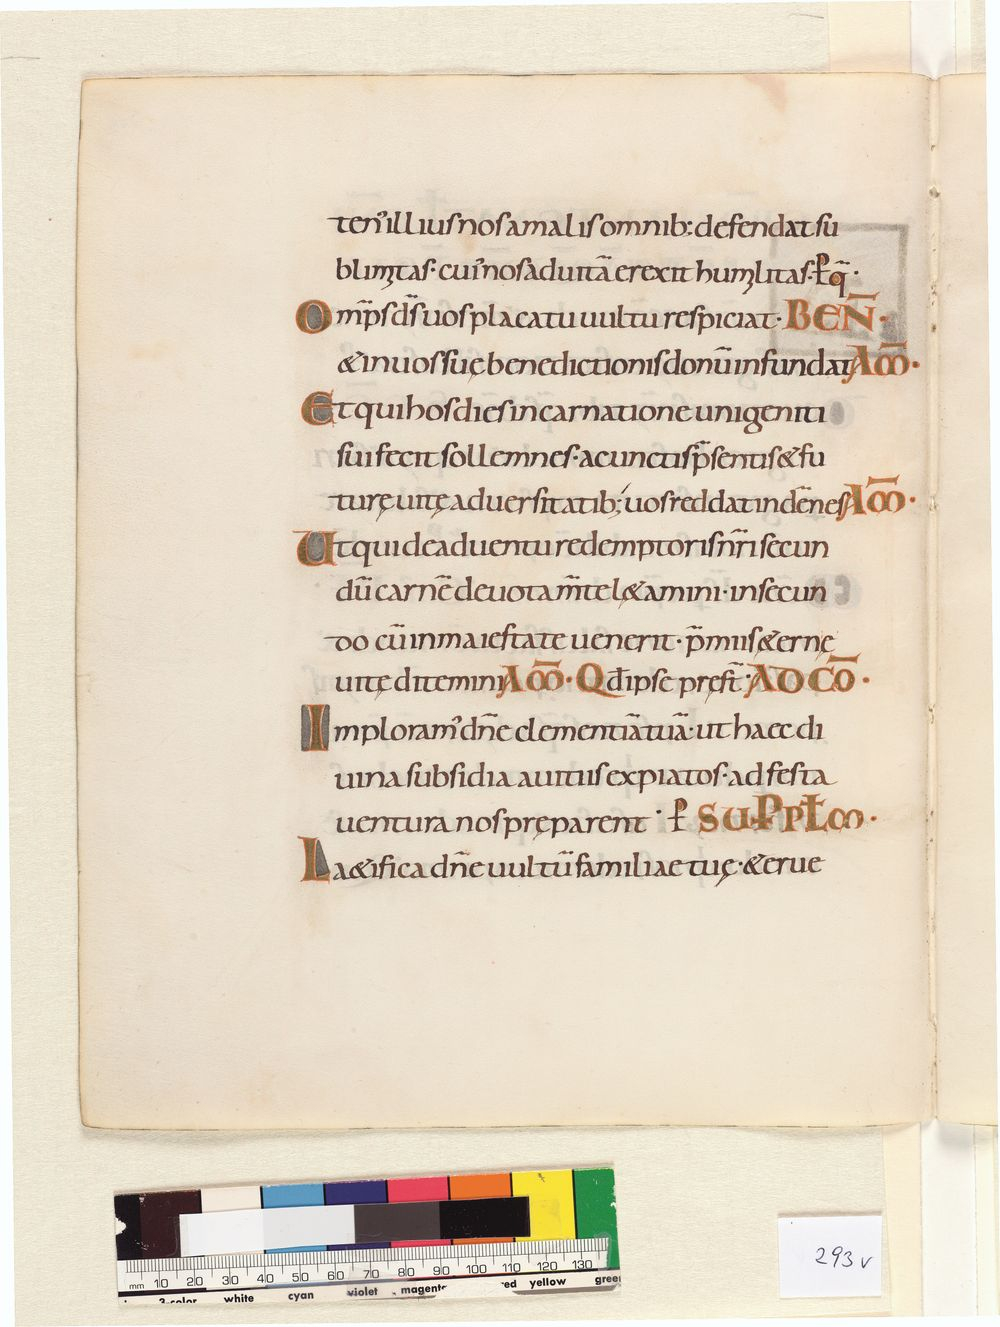 ten̄ illius nos a malis omnib; defendat su
blimitas· cui᷒ nos ad uitā erexit humilitas· ꝑ q̄·
Om̄ps d̄s uos placatu uultu respiciat· BEN̄·
& in uos suę benedictionis donū infundat AM̄·
Et qui hos dies incarnatione unigeniti
sui fecit sollemnes· a cunctis p̄sentis & fu
turę uitę aduersitatib; uos reddat indēnes AM̄·
Ut qui de aduentu redemptoris nr̄i secun
dū carnē deuota m̄te l&amini· in secun
do cū in maiestate uenerit· p̄miis &ernę
uitę ditemini AM̄· Qđ ipse pręst̄· AD CŌ·
Imploram᷒ dn̄e clementiā tuā· ut haec di
uina subsidia a uitiis expiatos· ad festa
uentura nos pręparent· ꝑ SUP PŁM·
La&ifica dn̄e uultū familiae tuę· & erue
293v
mm 10 20 30 40 50 60 70 80 90 100 110 120 130
3-color white cyan violet magenta red yellow green